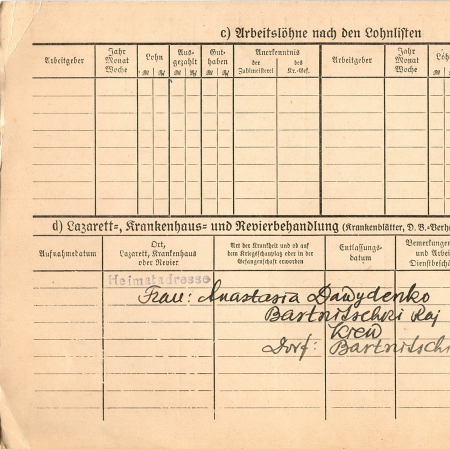 c) Arbeitslöhne nach den Lohnlisten
Arbeitgeber Jahr Monat Woche Lohn Aus- gezahlt Gut- haben Anerkenntnis Arbeitgeber Jahr Monat Woche Löh
RM Rpf RM Rpf RM Rpf der Zahlmeisterei des Kr.-Gef.
d) Lazarett-, Krankenhaus- und Revierbehandlung (Krankenblätter, D. B.-Verh
Aufnahmedatum Ort, Lazarett, Krankenhaus oder Revier Art der Krankheit und ob auf dem Kriegsschauplatz oder in der Gefangenschaft erworben Entlassungs- datum Bemerkungen und Arbei Dienstbeschä
Heimatadresse
Frau: Anastasia Dawydenko
Bartnitschki Raj
Kiew
Dorf: Bartnitschi